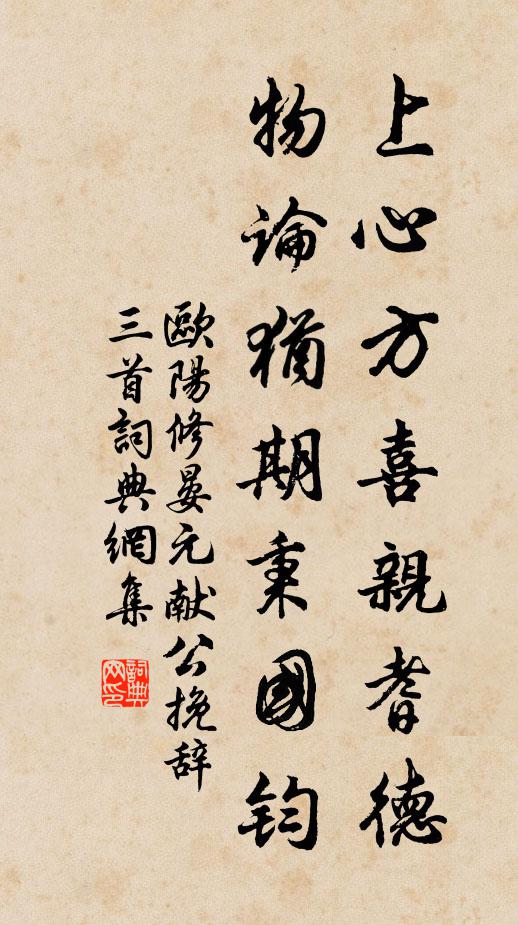 上心方喜親耆德
物論猶期秉國鈞
歐陽修晏元献公挽辞
三首詞典網集
詞典网印